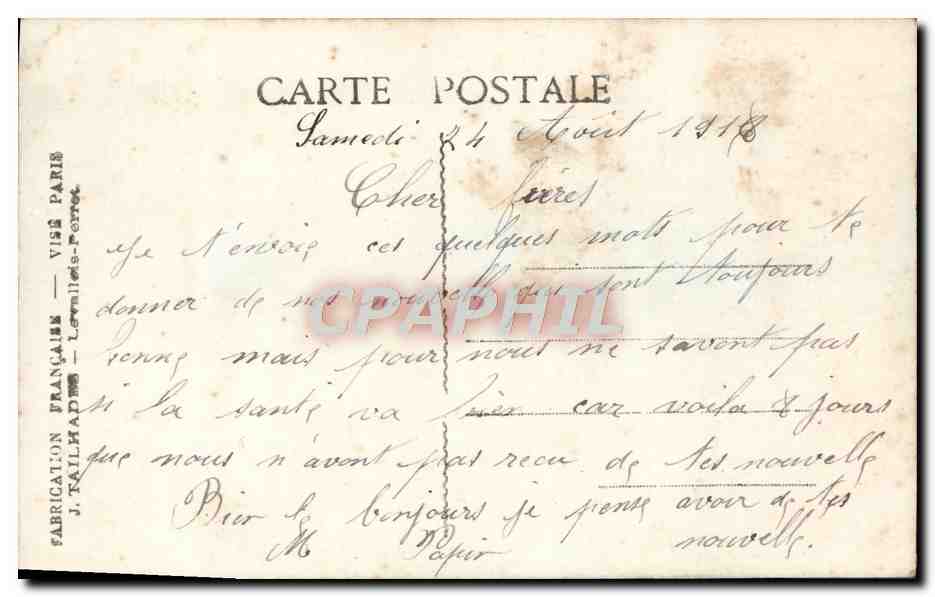 CARTE POSTALE
Samedi 24 Août 1918
Cher frères
Je t'envoie ces quelques mots pour te
donner de nos nouvelle qui sent toujours
bonne mais pour nous ne savont pas
si la santé va bien car voila 8 jours
que nous n'avont pas recu de tes nouvelle
Bien le bonjours je pense avoir de tes
nouvelle.
M Papir
FABRICATION FRANÇAISE — VISÉ PARIS
J. TAILHADES — Levallois-Perret
CPAPHIL